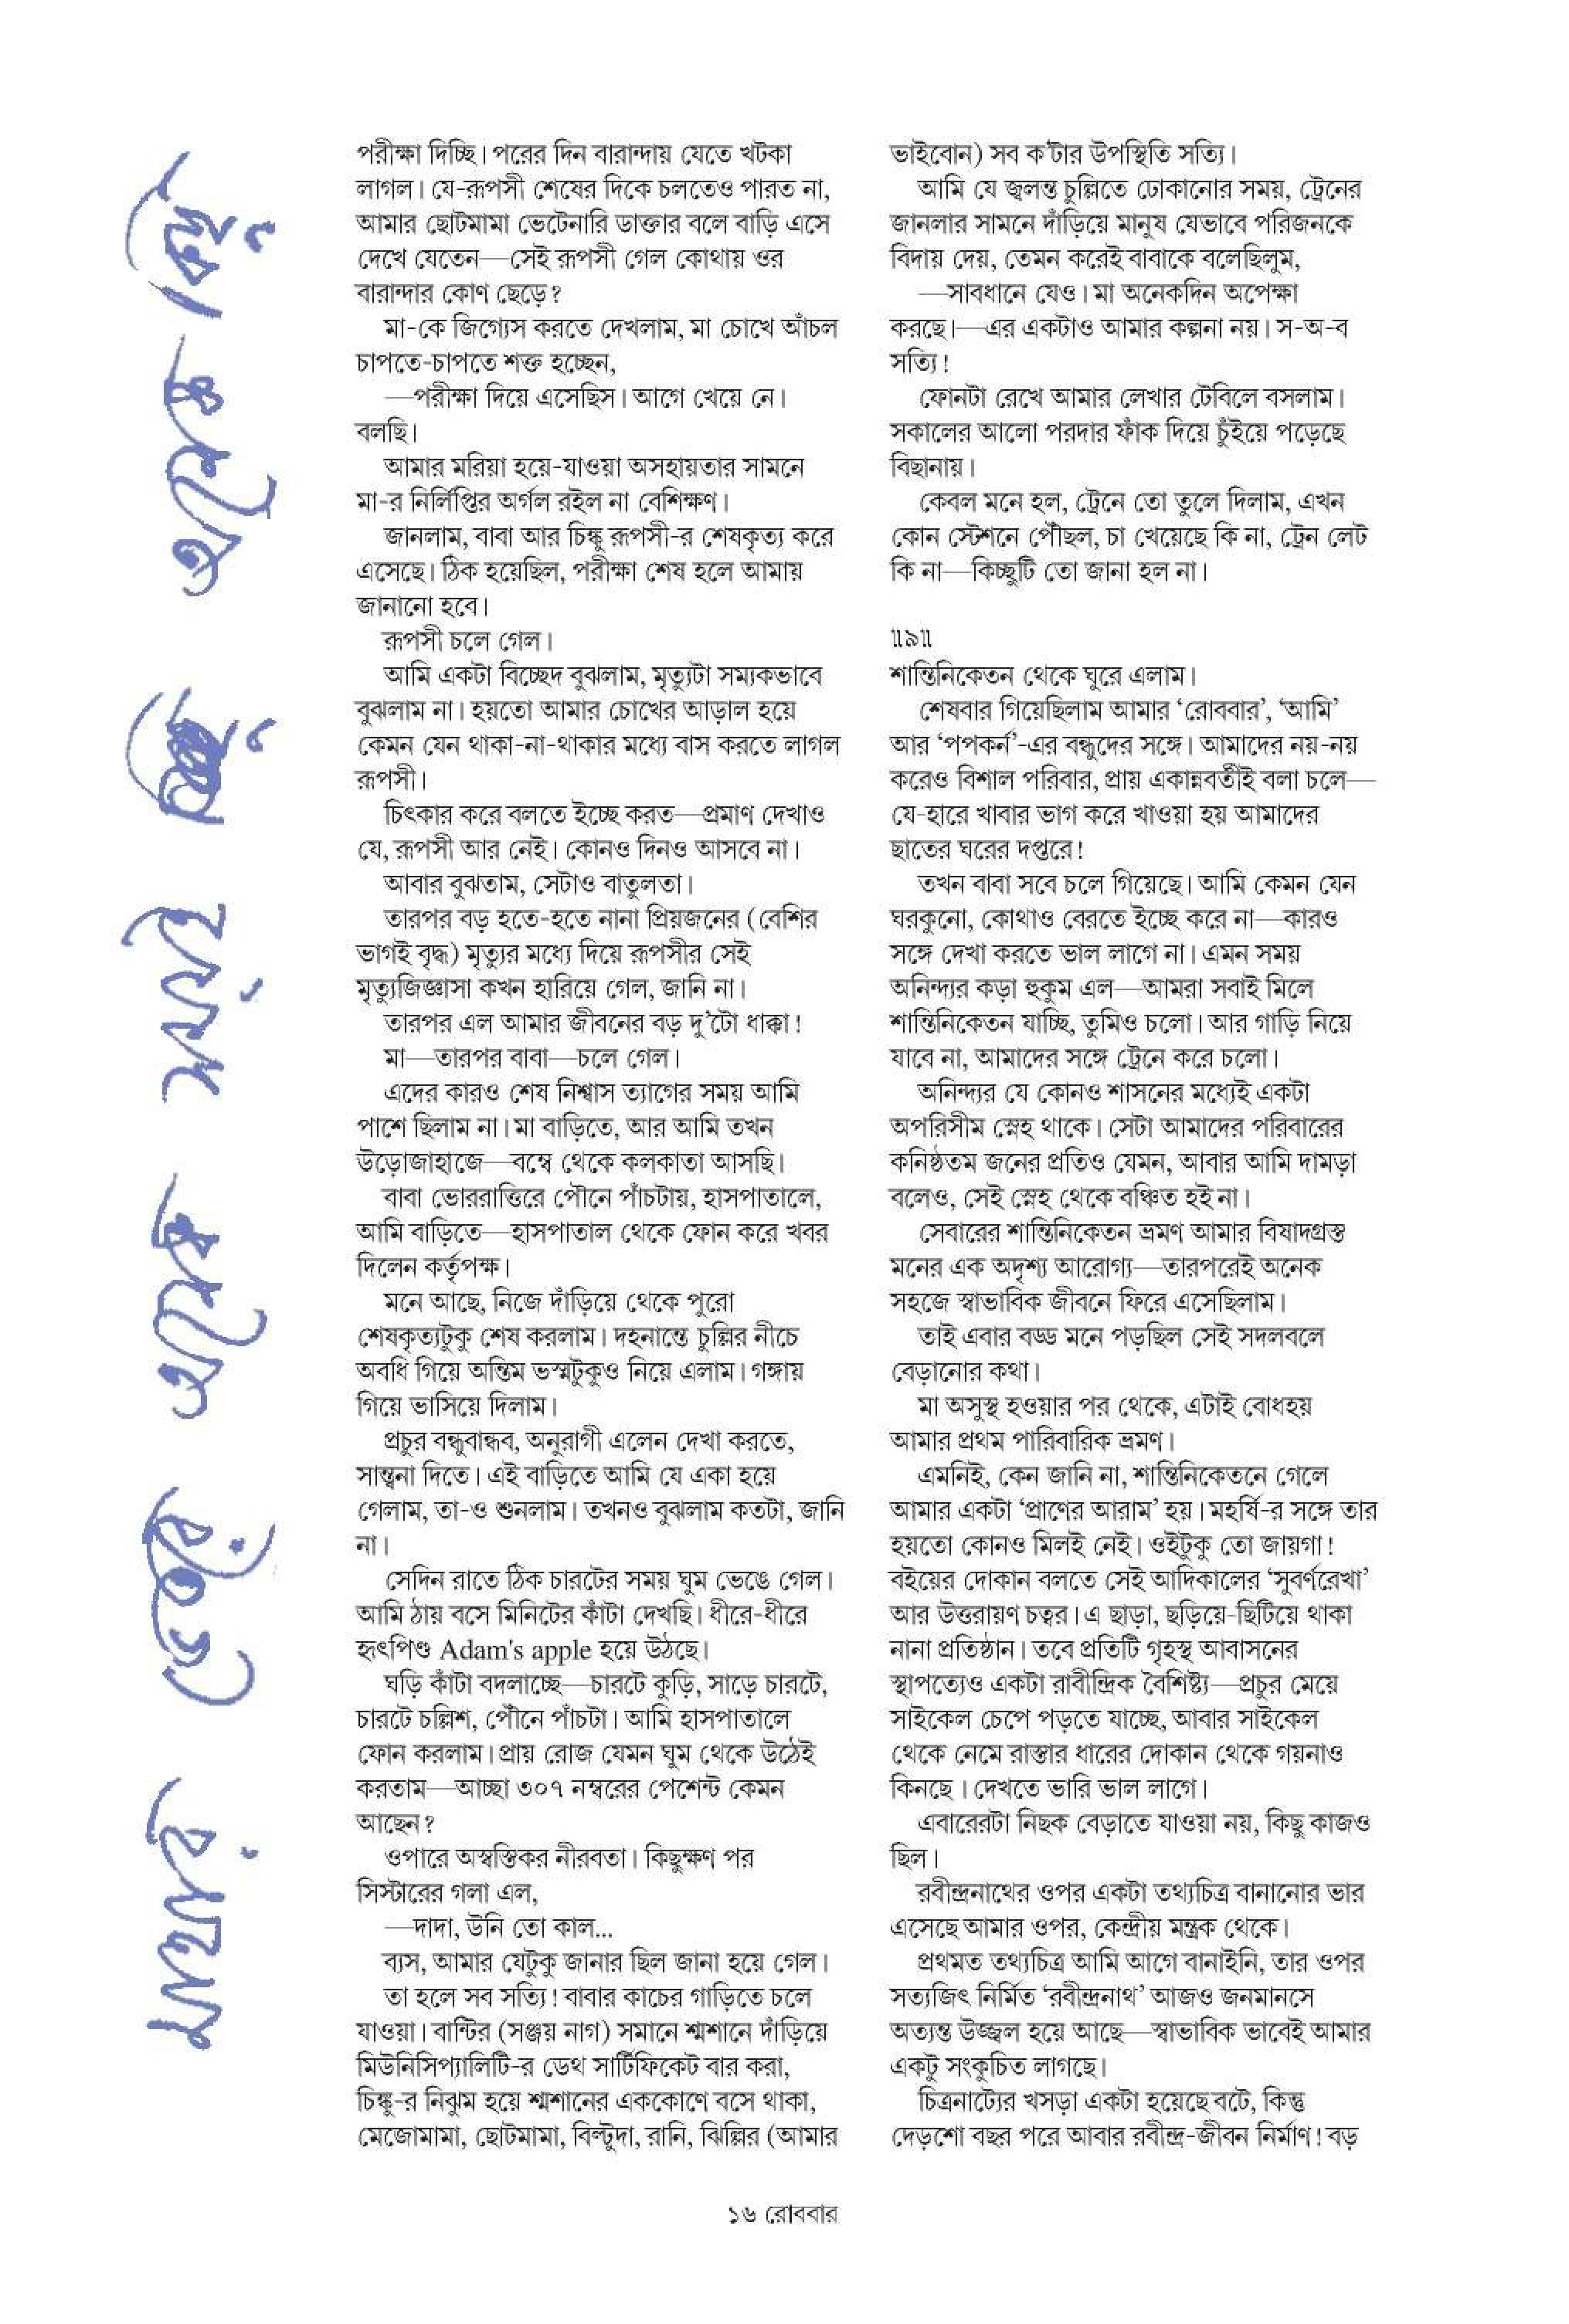 পরীক্ষা দিচ্ছি। পরের দিন বারান্দায় যেতে খটকা
লাগল। যে-রূপসী শেষের দিকে চলতেও পারত না,
আমার ছোটমামা ভেটেনারি ডাক্তার বলে বাড়ি এসে
দেখে যেতেন—সেই রূপসী গেল কোথায় ওর
বারান্দার কোণ ছেড়ে?
মা-কে জিগ্যেস করতে দেখলাম, মা চোখে আঁচল
চাপতে-চাপতে শক্ত হচ্ছেন,
—পরীক্ষা দিয়ে এসেছিস। আগে খেয়ে নে।
বলছি।
আমার মরিয়া হয়ে-যাওয়া অসহায়তার সামনে
মা-র নির্লিপ্তির অর্গল রইল না বেশিক্ষণ।
জানলাম, বাবা আর চিঙ্কু রূপসী-র শেষকৃত্য করে
এসেছে। ঠিক হয়েছিল, পরীক্ষা শেষ হলে আমায়
জানানো হবে।
রূপসী চলে গেল।
আমি একটা বিচ্ছেদ বুঝলাম, মৃত্যুটা সম্যকভাবে
বুঝলাম না। হয়তো আমার চোখের আড়াল হয়ে
কেমন যেন থাকা-না-থাকার মধ্যে বাস করতে লাগল
রূপসী।
চিৎকার করে বলতে ইচ্ছে করত—প্রমাণ দেখাও
যে, রূপসী আর নেই। কোনও দিনও আসবে না।
আবার বুঝতাম, সেটাও বাতুলতা।
তারপর বড় হতে-হতে নানা প্রিয়জনের (বেশির
ভাগই বৃদ্ধ) মৃত্যুর মধ্যে দিয়ে রূপসীর সেই
মৃত্যুজিজ্ঞাসা কখন হারিয়ে গেল, জানি না।
তারপর এল আমার জীবনের বড় দু'টো ধাক্কা!
মা—তারপর বাবা—চলে গেল।
এদের কারও শেষ নিশ্বাস ত্যাগের সময় আমি
পাশে ছিলাম না। মা বাড়িতে, আর আমি তখন
উড়োজাহাজে—বম্বে থেকে কলকাতা আসছি।
বাবা ভোররাত্তিরে পৌনে পাঁচটায়, হাসপাতালে,
আমি বাড়িতে—হাসপাতাল থেকে ফোন করে খবর
দিলেন কর্তৃপক্ষ।
মনে আছে, নিজে দাঁড়িয়ে থেকে পুরো
শেষকৃত্যটুকু শেষ করলাম। দহনান্তে চুল্লির নীচে
অবধি গিয়ে অন্তিম ভস্মটুকুও নিয়ে এলাম। গঙ্গায়
গিয়ে ভাসিয়ে দিলাম।
প্রচুর বন্ধুবান্ধব, অনুরাগী এলেন দেখা করতে,
সান্ত্বনা দিতে। এই বাড়িতে আমি যে একা হয়ে
গেলাম, তা-ও শুনলাম। তখনও বুঝলাম কতটা, জানি
না।
সেদিন রাতে ঠিক চারটের সময় ঘুম ভেঙে গেল।
আমি ঠায় বসে মিনিটের কাঁটা দেখছি। ধীরে-ধীরে
হৃৎপিণ্ড Adam's apple হয়ে উঠছে।
ঘড়ি কাঁটা বদলাচ্ছে—চারটে কুড়ি, সাড়ে চারটে,
চারটে চল্লিশ, পৌনে পাঁচটা। আমি হাসপাতালে
ফোন করলাম। প্রায় রোজ যেমন ঘুম থেকে উঠেই
করতাম—আচ্ছা ৩০৭ নম্বরের পেশেন্ট কেমন
আছেন?
ওপারে অস্বস্তিকর নীরবতা। কিছুক্ষণ পর
সিস্টারের গলা এল,
—দাদা, উনি তো কাল...
ব্যস, আমার যেটুকু জানার ছিল জানা হয়ে গেল।
তা হলে সব সত্যি! বাবার কাচের গাড়িতে চলে
যাওয়া। বান্টির (সঞ্জয় নাগ) সমানে শ্মশানে দাঁড়িয়ে
মিউনিসিপ্যালিটি-র ডেথ সার্টিফিকেট বার করা,
চিঙ্কু-র নিঝুম হয়ে শ্মশানের এককোণে বসে থাকা,
মেজোমামা, ছোটমামা, বিল্টুদা, রানি, ঝিল্লির (আমার
ভাইবোন) সব ক'টার উপস্থিতি সত্যি।
আমি যে জ্বলন্ত চুল্লিতে ঢোকানোর সময়, ট্রেনের
জানলার সামনে দাঁড়িয়ে মানুষ যেভাবে পরিজনকে
বিদায় দেয়, তেমন করেই বাবাকে বলেছিলুম,
—সাবধানে যেও। মা অনেকদিন অপেক্ষা
করছে।—এর একটাও আমার কল্পনা নয়। স-অ-ব
সত্যি!
ফোনটা রেখে আমার লেখার টেবিলে বসলাম।
সকালের আলো পরদার ফাঁক দিয়ে চুঁইয়ে পড়েছে
বিছানায়।
কেবল মনে হল, ট্রেনে তো তুলে দিলাম, এখন
কোন স্টেশনে পৌঁছল, চা খেয়েছে কি না, ট্রেন লেট
কি না—কিচ্ছুটি তো জানা হল না।
॥৯॥
শান্তিনিকেতন থেকে ঘুরে এলাম।
শেষবার গিয়েছিলাম আমার ‘রোববার’, ‘আমি’
আর ‘পপকর্ন’-এর বন্ধুদের সঙ্গে। আমাদের নয়-নয়
করেও বিশাল পরিবার, প্রায় একান্নবর্তীই বলা চলে—
যে-হারে খাবার ভাগ করে খাওয়া হয় আমাদের
ছাতের ঘরের দপ্তরে!
তখন বাবা সবে চলে গিয়েছে। আমি কেমন যেন
ঘরকুনো, কোথাও বেরতে ইচ্ছে করে না—কারও
সঙ্গে দেখা করতে ভাল লাগে না। এমন সময়
অনিন্দ্যর কড়া হুকুম এল—আমরা সবাই মিলে
শান্তিনিকেতন যাচ্ছি, তুমিও চলো। আর গাড়ি নিয়ে
যাবে না, আমাদের সঙ্গে ট্রেনে করে চলো।
অনিন্দ্যর যে কোনও শাসনের মধ্যেই একটা
অপরিসীম স্নেহ থাকে। সেটা আমাদের পরিবারের
কনিষ্ঠতম জনের প্রতিও যেমন, আবার আমি দামড়া
বলেও, সেই স্নেহ থেকে বঞ্চিত হই না।
সেবারের শান্তিনিকেতন ভ্রমণ আমার বিষাদগ্রস্ত
মনের এক অদৃশ্য আরোগ্য—তারপরেই অনেক
সহজে স্বাভাবিক জীবনে ফিরে এসেছিলাম।
তাই এবার বড্ড মনে পড়ছিল সেই সদলবলে
বেড়ানোর কথা।
মা অসুস্থ হওয়ার পর থেকে, এটাই বোধহয়
আমার প্রথম পারিবারিক ভ্রমণ।
এমনিই, কেন জানি না, শান্তিনিকেতনে গেলে
আমার একটা ‘প্রাণের আরাম’ হয়। মহর্ষি-র সঙ্গে তার
হয়তো কোনও মিলই নেই। ওইটুকু তো জায়গা!
বইয়ের দোকান বলতে সেই আদিকালের ‘সুবর্ণরেখা’
আর উত্তরায়ণ চত্বর। এ ছাড়া, ছড়িয়ে-ছিটিয়ে থাকা
নানা প্রতিষ্ঠান। তবে প্রতিটি গৃহস্থ আবাসনের
স্থাপত্যেও একটা রাবীন্দ্রিক বৈশিষ্ট্য—প্রচুর মেয়ে
সাইকেল চেপে পড়তে যাচ্ছে, আবার সাইকেল
থেকে নেমে রাস্তার ধারের দোকান থেকে গয়নাও
কিনছে। দেখতে ভারি ভাল লাগে।
এবারেরটা নিছক বেড়াতে যাওয়া নয়, কিছু কাজও
ছিল।
রবীন্দ্রনাথের ওপর একটা তথ্যচিত্র বানানোর ভার
এসেছে আমার ওপর, কেন্দ্রীয় মন্ত্রক থেকে।
প্রথমত তথ্যচিত্র আমি আগে বানাইনি, তার ওপর
সত্যজিৎ নির্মিত ‘রবীন্দ্রনাথ’ আজও জনমানসে
অত্যন্ত উজ্জ্বল হয়ে আছে—স্বাভাবিক ভাবেই আমার
একটু সংকুচিত লাগছে।
চিত্রনাট্যের খসড়া একটা হয়েছে বটে, কিন্তু
দেড়শো বছর পরে আবার রবীন্দ্র-জীবন নির্মাণ! বড়
১৬ রোববার